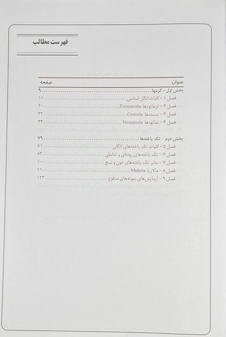 فهرست مطالب
عنوان صفحه
بخش اول - کرمها ۹
فصل ۱ - کلیات انگل شناسی ۱۱
فصل ۲ - ترماتودها Trematoda
فصل ۳ - سستدها Cestoda ۳۳
فصل ۴ - نماتودها Nematoda ۴۳
بخش دوم - تک یاخته‌ها ۵۹
فصل ۵ - کلیات تک یاخته‌های انگلی ۶۱
فصل ۶ - تک یاخته‌های روده‌ای و تناسلی
فصل ۷ - سایر تک یاخته‌های خون و نسج
فصل ۸ - مالاریا Malaria
فصل ۹ - آزمایش‌های نمونه‌های مدفوع ۱۲۳